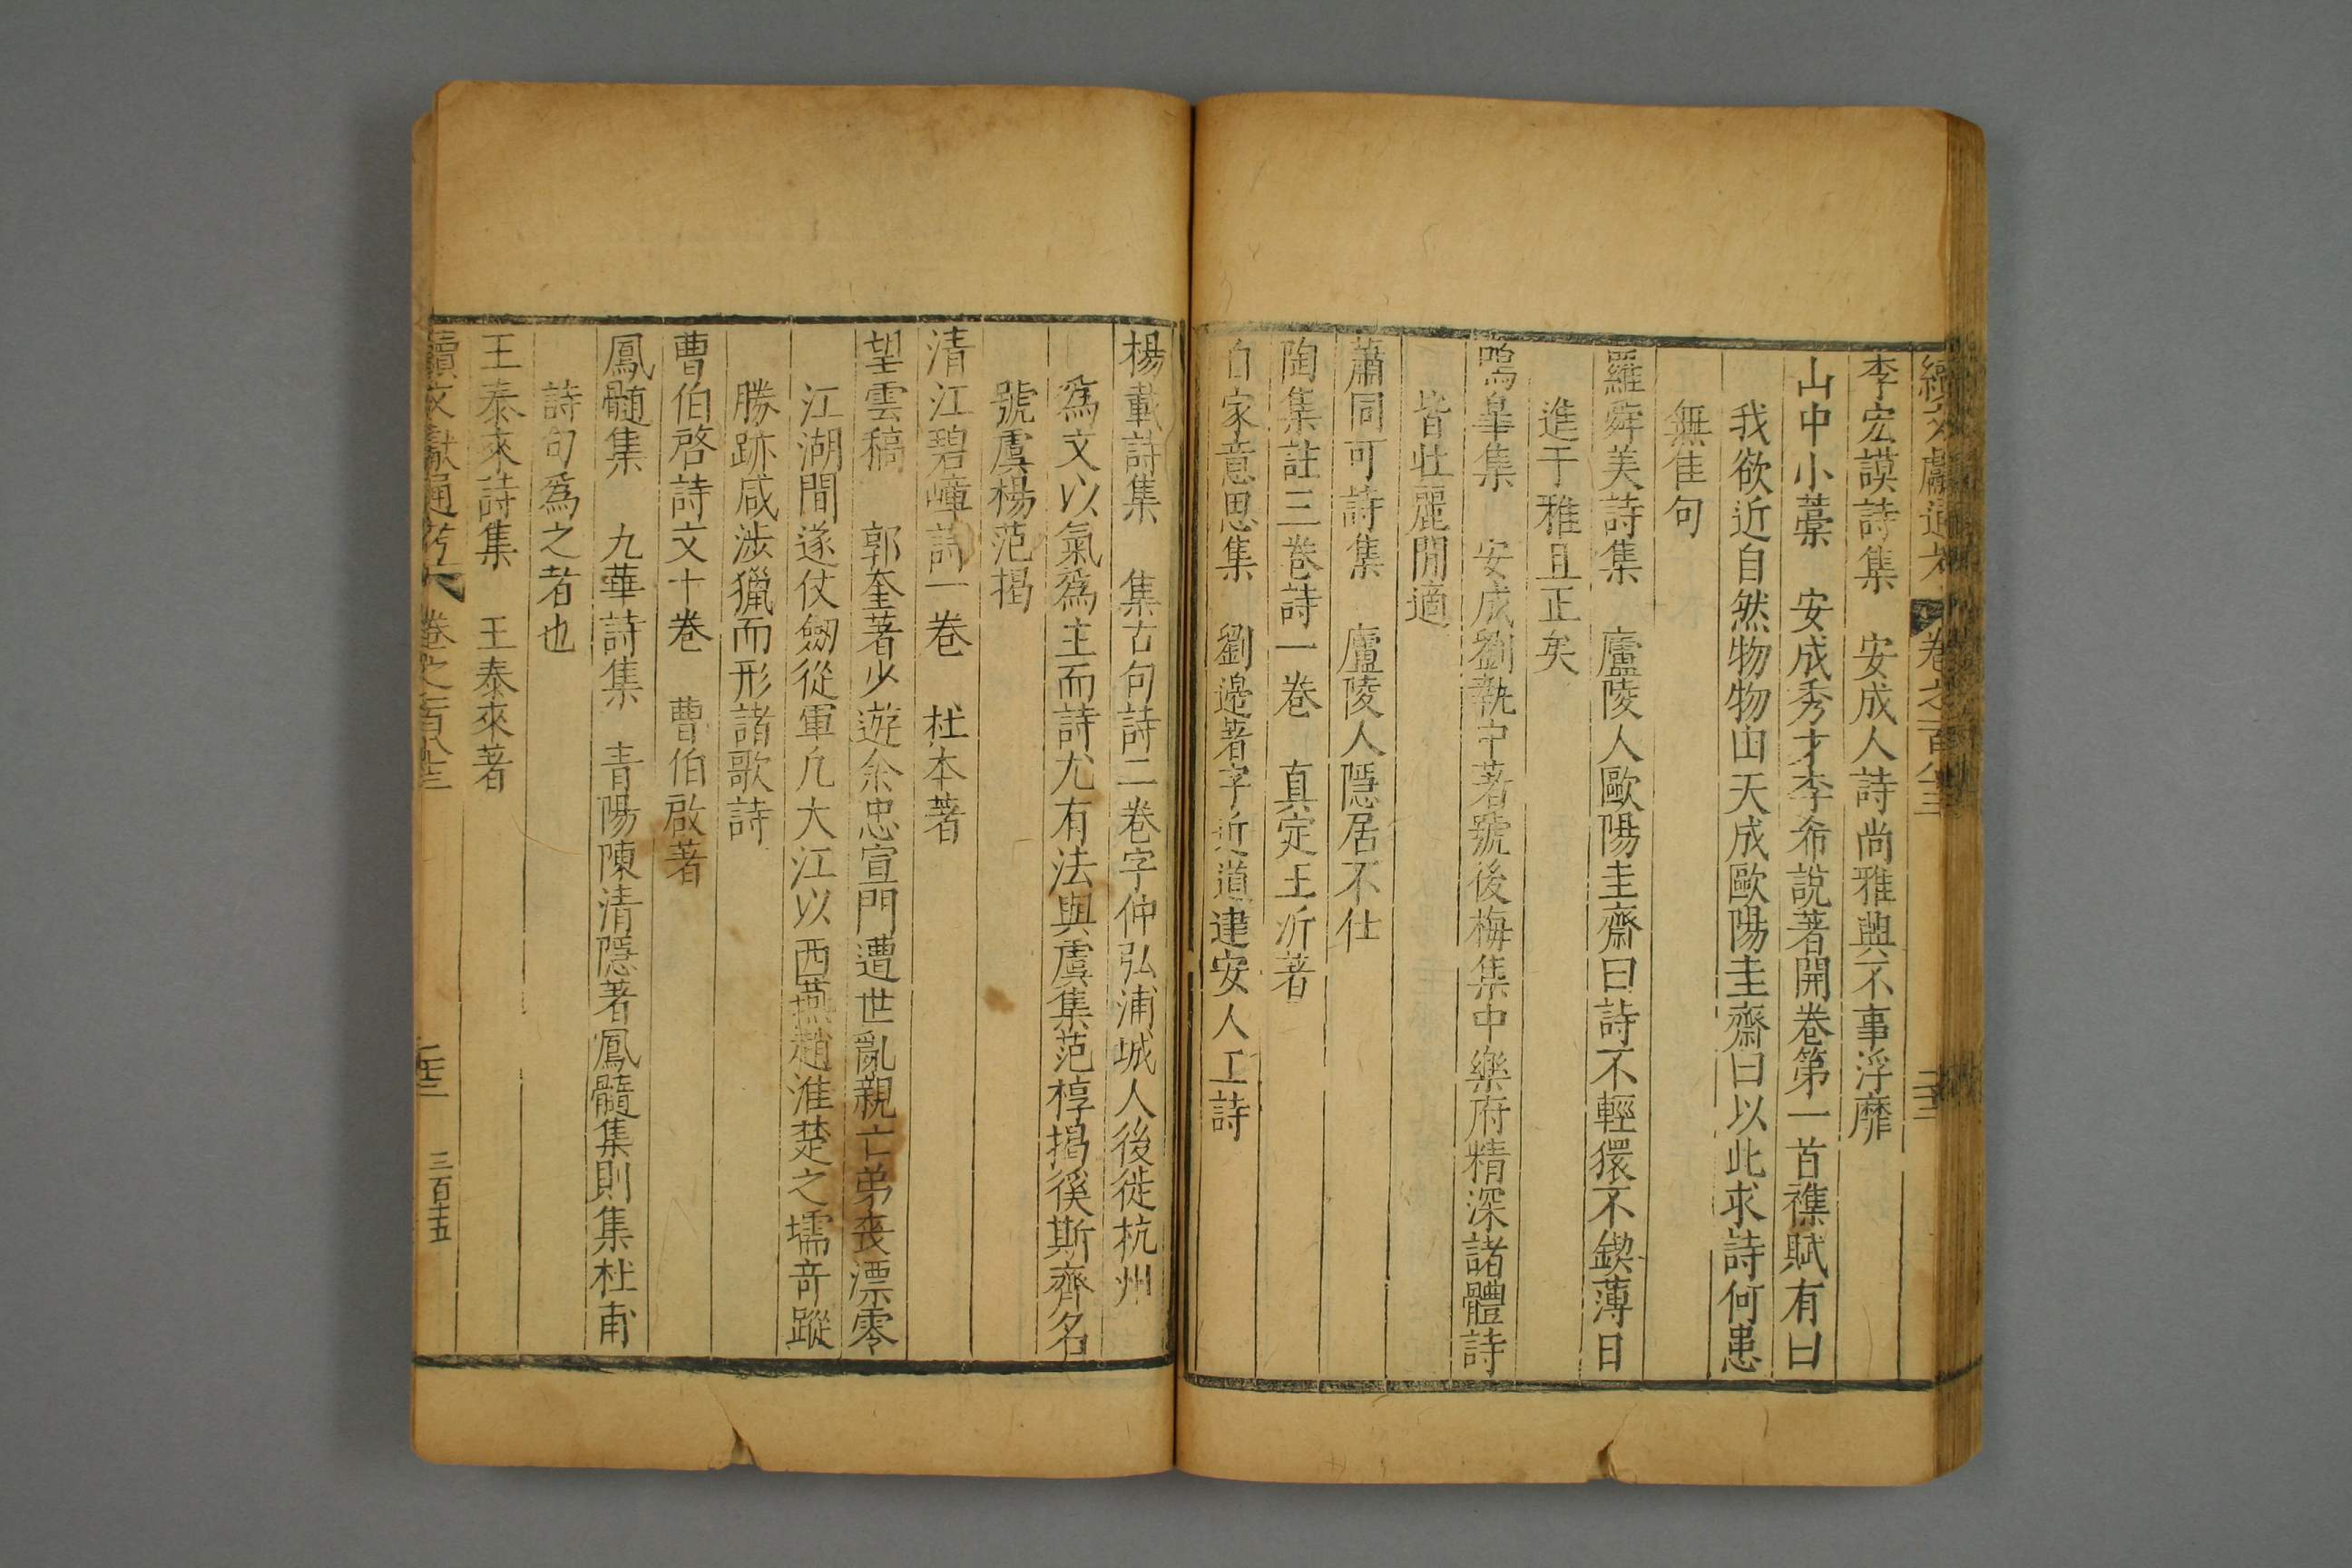 續文獻通考 卷之一百八十三 二十二
李宏謨詩集 安成人詩尚雅興不事浮靡
山中小藁 安成秀才李希說著開卷第一首樵賦有曰
我欲近自然物物由天成歐陽圭齋曰以此求詩何患
無佳句
羅舜美詩集 廬陵人歐陽圭齋曰詩不輕獧不鍥薄日
進于雅且正矣
鳴皋集 安成劉執中著號後梅集中樂府精深諸體詩
皆壯麗閒適
蕭同可詩集 廬陵人隱居不仕
陶集註三卷詩一卷 真定王沂著
自家意思集 劉邊著字近道建安人工詩
楊載詩集 集古句詩二卷字仲弘浦城人後徙杭州
為文以氣為主而詩尤有法與虞集范梈揭徯斯齊名
號虞楊范揭
清江碧嶂詩一卷 杜本著
望雲稿 郭奎著少遊余忠宣門遭世亂親亡弟喪漂零
江湖間遂仗劒從軍凡大江以西燕趙淮楚之壖竒蹤
勝跡咸涉獵而形諸歌詩
曹伯啓詩文十卷 曹伯啟著
鳳髄集 九華詩集 青陽陳清隱著鳳髓集則集杜甫
詩句為之者也
王泰來詩集 王泰來著
續文獻通考 卷之一百八十三 二十三 三百十五